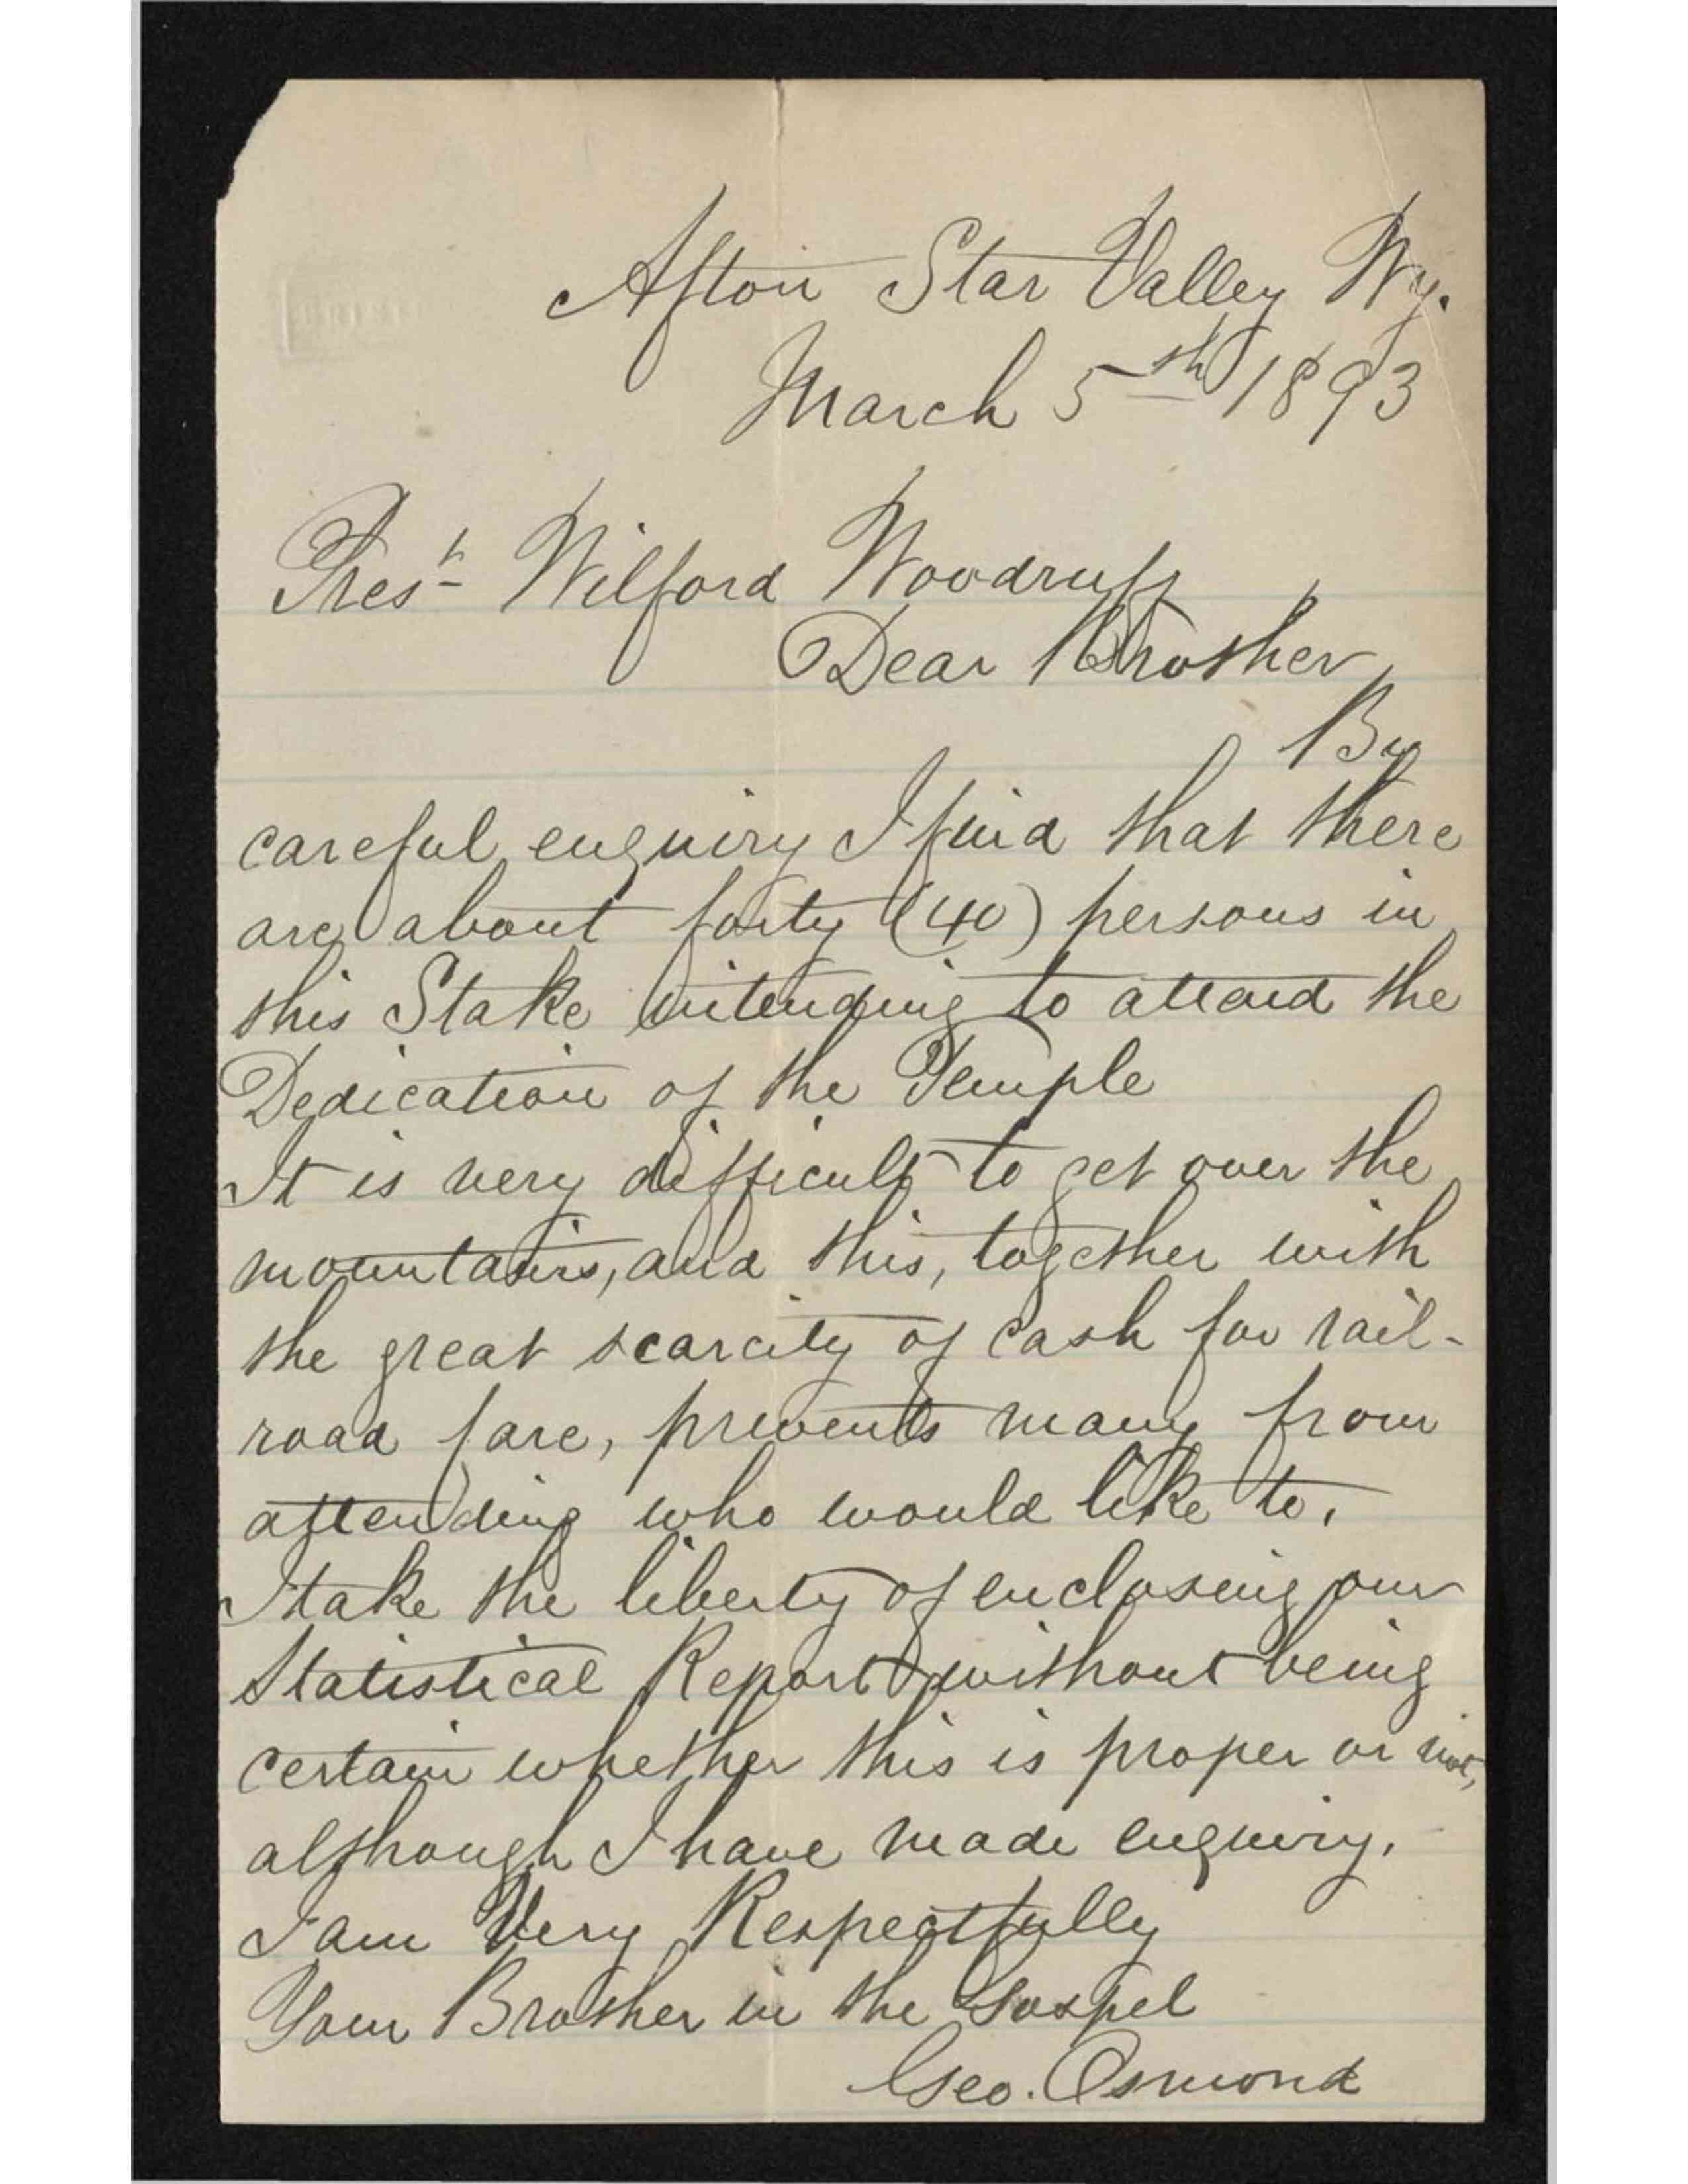 Afton Star Valley Wy.
March 5th 1893
Prest Wilford Woodruff,
Dear Brother,
By
careful enquiry I find that there
are about forty (40) persons in
this Stake intending to attend the
Dedication of the Temple
It is very difficult to get over the
mountains, and this, together with
the great scarcity of cash for rail-
road fare, prevents many from
attending who would like to.
I take the liberty of enclosing our
Statistical Report without being
certain whether this is proper or not,
although I have made enquiry.
I am Very Respectfully
Your Brother in the Gospel
Geo. Osmond